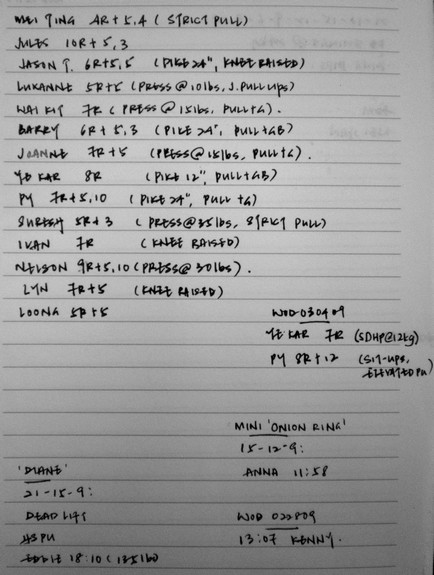 MEI TING 4R+5,4 (STRICT PULL)
JULES 10R+5,3
JASON T. 6R+5,5 (PIKE 24", KNEE RAISED)
LUKANNE 5R+5 (PRESS@10lbs, J.PULLUPS)
WAI KIT 7R (PRESS@15lbs, PULL+G).
BARRY 6R+5,3 (PIKE 24", PULL+GB)
JOANNE 7R+5 (PRESS@15lbs, PULL+G).
YE KAR 8R (PIKE 12", PULL+GB)
PY 7R+5,10 (PIKE 24", PULL +G)
SURESH 5R+3 (PRESS@35lbs, STRICT PULL)
IVAN 7R (KNEE RAISED)
NELSON 9R+5,10 (PRESS@30lbs).
LYN 7R+5 (KNEE RAISED)
LOONG 5R+5
WOD 030409
YE KAR 7R (SDHP@12kg)
PY 8R+12 (SIT-UPS, ELEVATED PU)
MINI 'ONION RING'
15-12-9:
ANNA 11:58
'DIANE'
21-15-9:
DEADLIFT
HSPU
EDDIE 18:10 (135lb)
WOD 022809
13:07 KENNY.